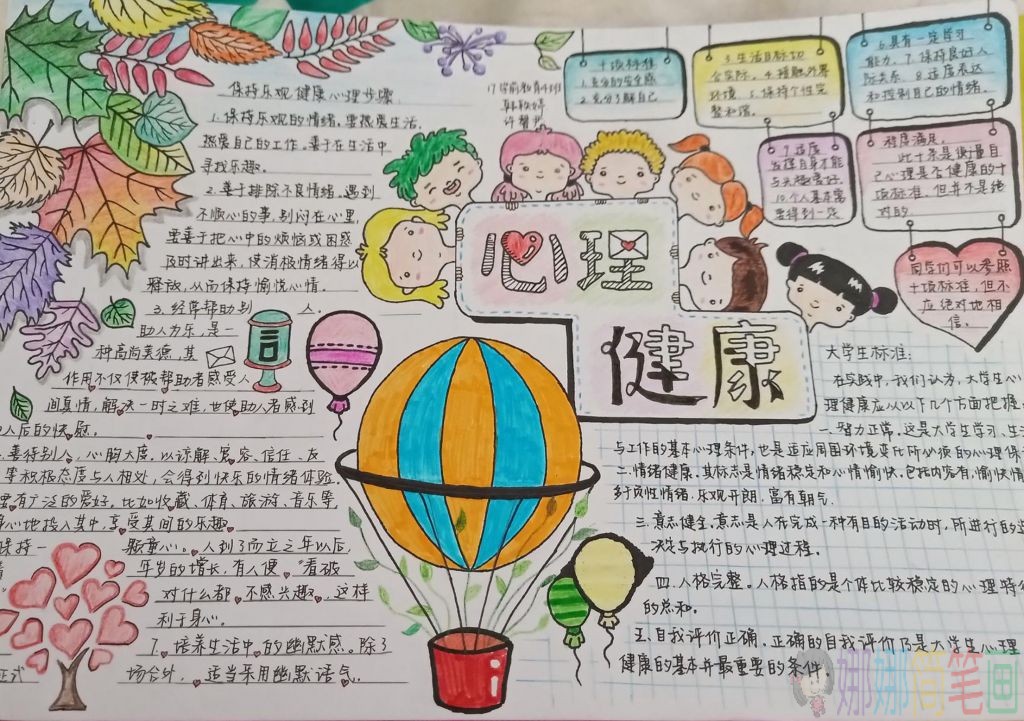 保持乐观健康心理步骤
1.保持乐观的情绪。要热爱生活,
热爱自己的工作。善于在生活中
寻找乐趣。
2.善于排除不良情绪。遇到
不顺心的事,别闷在心里,
要善于把心中的烦恼或困惑
及时讲出来,使消极情绪得以
释放,从而保持愉悦心情。
3.经常帮助别人。
助人为乐,是一
种高尚美德,其
作用不仅使被帮助者感受人
间真情,解决一时之难,也使助人者感到
人后的快慰。
善待别人,心胸大度,以谅解、宽容、信任、友
等积极态度与人相处,会得到快乐的情绪体验
要有广泛的爱好,比如收藏、体育、旅游、音乐等,
身心地投入其中,享受其间的乐趣。
保持一颗童心。人到了而立之年以后,
年岁的增长,有人便"看破
对什么都不感兴趣,这样
利于身心。
7.培养生活中的幽默感。除了
正式场合外,适当采用幽默语气。
17学前教育4班
言
心理
健康
十项标准
1.充分的安全感
2.充分了解自己
3.生活目标切
合实际。4.接触外界
环境 5.保持个性完
整和谐。
6.具有一定学习
能力。7.保持良好人
际关系。8.适度表达
和控制自己的情绪。
9.适度
发挥自身才能
与兴趣爱好
10.个人基本需
要得到一定
程度满足。
此十条是衡量自
己心理是否健康的十
项标准,但并不是绝
对的。
同学们可以参照
十项标准,但不
应绝对地相
信。
大学生标准:
在实践中,我们认为,大学生心
理健康应从以下几个方面把握:
一、智力正常。这是大学生学习、生活
与工作的基本心理条件,也是适应周围环境变化所必须的心理保
二、情绪健康。其标志是情绪稳定和心情愉快。包括内容有,愉快情
多于负性情绪,乐观开朗,富有朝气
三、意志健全。意志是人在完成一种有目的活动时,所进行的选
决定与执行的心理过程。
四、人格完整。人格指的是个体比较稳定的心理特征
的总和。
五、自我评价正确。正确的自我评价乃是大学生心理
健康的基本并最重要的条件。
娜娜简笔画